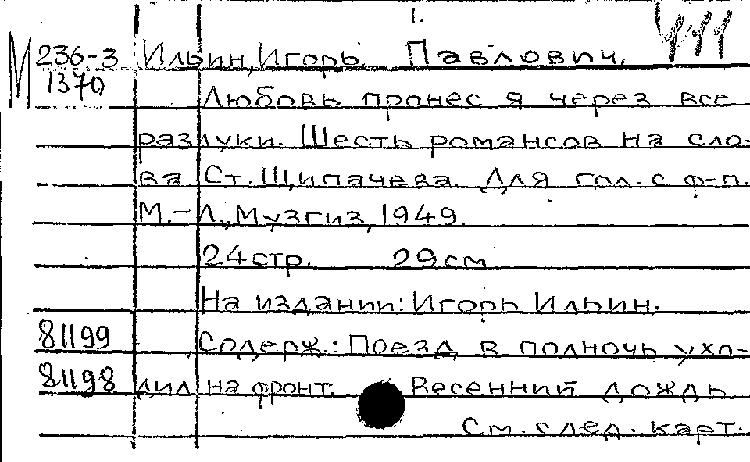 1.
М 236-3 Ильин, Игорь Павлович.
1370 Любовь пронес я через все
разлуки. Шесть романсов на сло-
ва Ст. Щипачева. Для гол. с ф-п.
М.-Л., Музгиз, 1949.
24 стр. 29 см
На издании: Игорь Ильин.
81199 Содерж.: Поезд в полночь ухо-
81198 дил на фронт. Весенний дождь
См. след. карт.